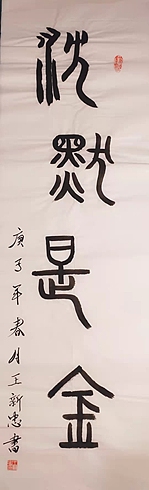 沈默是金
庚子年春月王新忠書